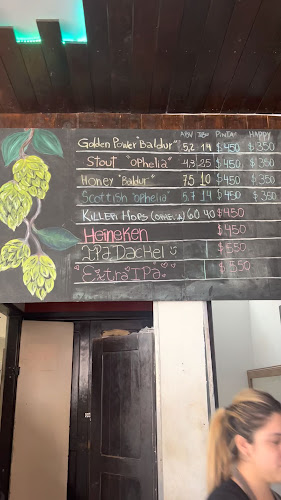 ABV IBU PINTA HAPPY
Golden Power "Baldur" 5,2 14 $450 $350
Stout "Ophelia" 4,3 25 $450 $350
Honey "Baldur" 7,5 10 $450 $350
Scottish "Ophelia" 5.7 14 $450 $350
Killer Hops (Ophelia) 60 40 $450
Heineken $450
Ipa Dachel $550
"Extra IPA" $550